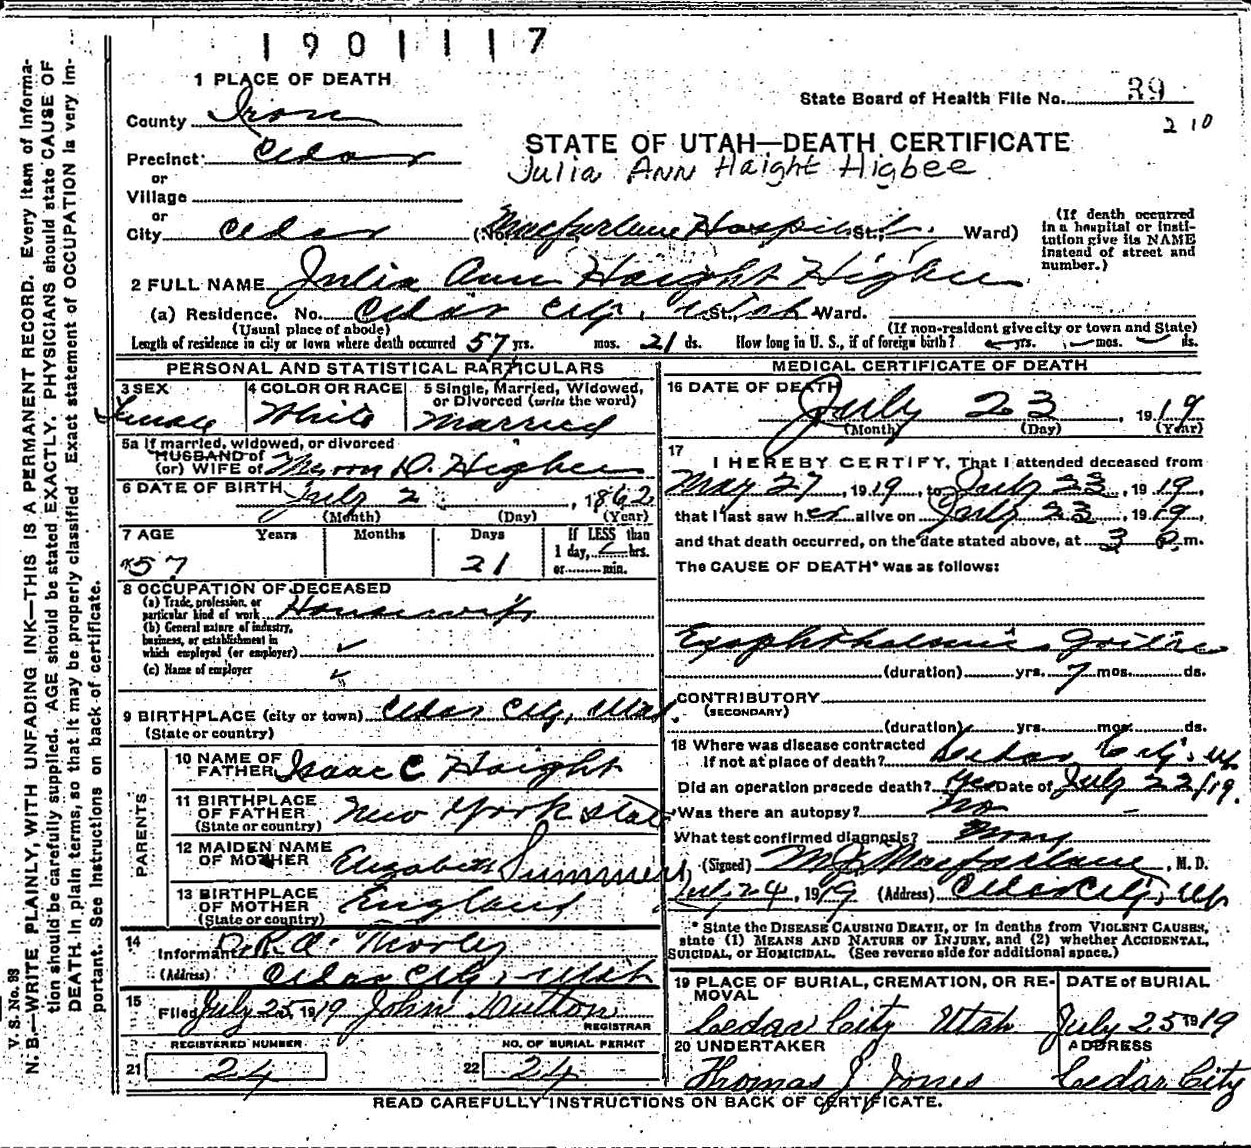 1901117
1 PLACE OF DEATH
State Board of Health File No. 39
2 10
County Iron
STATE OF UTAH—DEATH CERTIFICATE
Precinct Cedar
Julia Ann Haight Higbee
or
Village
or
City Cedar (No. Macfarlane Hospital St., Ward)
(If death occurred in a hospital or insti-
tution give its NAME
instead of street and
number.)
2 FULL NAME Julia Ann Haight Higbee
(a) Residence. No. Cedar City, Utah St., Ward.
(Usual place of abode) (If non-resident give city or town and State)
Length of residence in city or town where death occurred 57 yrs. mos. 21 ds. How long in U. S., if of foreign birth? yrs. mos. ds.
PERSONAL AND STATISTICAL PARTICULARS
3 SEX Female
4 COLOR OR RACE White
5 Single, Married, Widowed,
or Divorced (write the word)
Married
5a If married, widowed, or divorced
HUSBAND of
(or) WIFE of Myron D. Higbee
6 DATE OF BIRTH July 2, 1862
(Month) (Day) (Year)
7 AGE Years Months Days
57 21
If LESS than
1 day, hrs.
or min.
8 OCCUPATION OF DECEASED
(a) Trade, profession, or
particular kind of work Housewife
(b) General nature of industry,
business, or establishment in
which employed (or employer) ✓
(c) Name of employer ✓
9 BIRTHPLACE (city or town) Cedar City, Utah
(State or country)
PARENTS
10 NAME OF
FATHER Isaac C Haight
11 BIRTHPLACE
OF FATHER New York State
(State or country)
12 MAIDEN NAME
OF MOTHER Elizabeth Summers
13 BIRTHPLACE
OF MOTHER England
(State or country)
14
Informant
(Address) Cedar City, Utah
15
Filed July 25, 1919 John
REGISTRAR
REGISTERED NUMBER NO. OF BURIAL PERMIT
21 24 22 24
MEDICAL CERTIFICATE OF DEATH
16 DATE OF DEATH
July 23, 1919
(Month) (Day) (Year)
17
I HEREBY CERTIFY, That I attended deceased from
May 27, 1919, to July 23, 1919,
that I last saw her alive on July 23, 1919,
and that death occurred, on the date stated above, at 3 m.
The CAUSE OF DEATH* was as follows:
Exophthalmic Goitre
(duration) yrs. 7 mos. ds.
CONTRIBUTORY
(SECONDARY)
(duration) yrs. mos. ds.
18 Where was disease contracted
If not at place of death? Cedar City, Ut
Did an operation precede death? Yes Date of July 22/19.
Was there an autopsy? No
What test confirmed diagnosis? None
(Signed) M.J. Macfarlane, M. D.
July 24, 1919 (Address) Cedar City, Ut
* State the DISEASE CAUSING DEATH, or in deaths from VIOLENT CAUSES,
state (1) MEANS AND NATURE OF INJURY, and (2) whether ACCIDENTAL,
SUICIDAL, or HOMICIDAL. (See reverse side for additional space.)
19 PLACE OF BURIAL, CREMATION, OR RE-
MOVAL
Cedar City Utah
DATE of BURIAL
July 25 1919
20 UNDERTAKER
Thomas J Jones
ADDRESS
Cedar City
READ CAREFULLY INSTRUCTIONS ON BACK OF CERTIFICATE.
V. S. No. 98
N. B.—WRITE PLAINLY, WITH UNFADING INK—THIS IS A PERMANENT RECORD. Every item of informa-
tion should be carefully supplied. AGE should be stated EXACTLY. PHYSICIANS should state CAUSE OF
DEATH in plain terms, so that it may be properly classified. Exact statement of OCCUPATION is very im-
portant. See instructions on back of certificate.